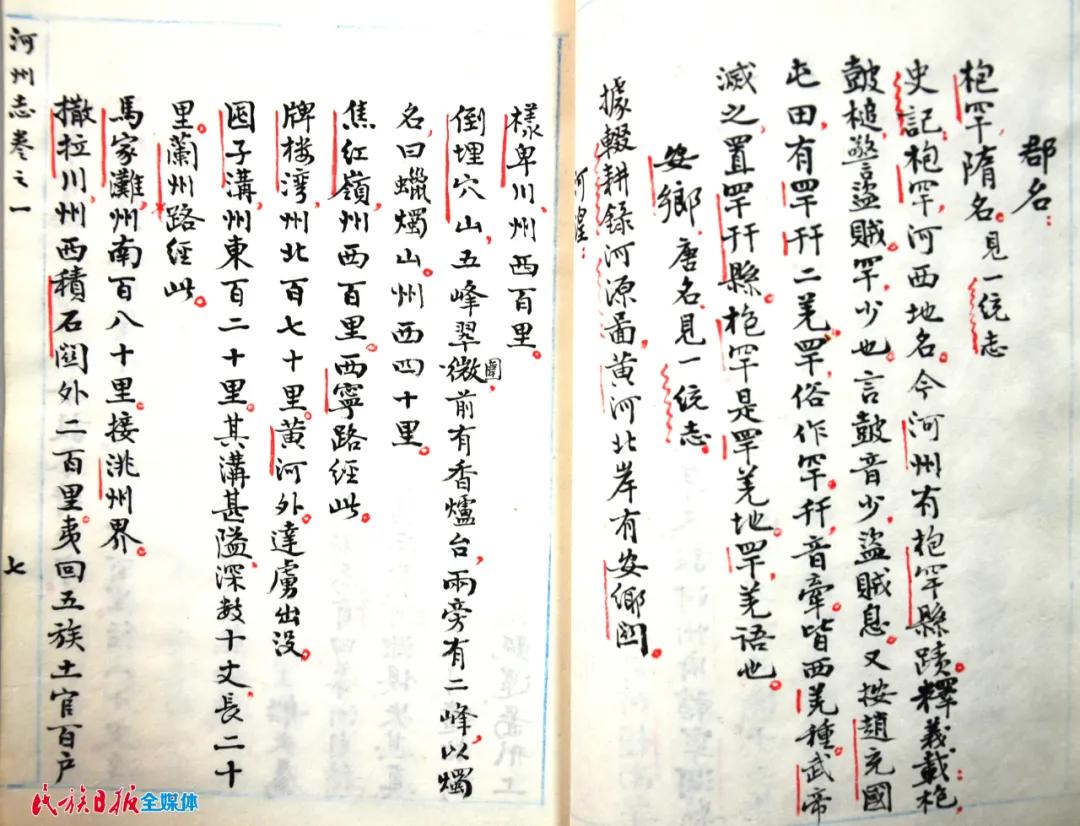 郡名：
枹罕，隋名。見一統志
史記：枹罕，河西地名。今河州有枹罕縣蹟。釋義載：枹，
鼓槌，警盜賊。罕，少也。言鼓音少，盜賊息。又按趙充國
屯田，有䍐幵二羌。䍐，俗作罕。幵，音牽。皆西羌種。武帝
滅之，置䍐幵縣。枹罕是䍐羌地。䍐，羌語也。
安鄉，唐名，見一統志。
據輟耕錄河源圖，黃河北岸有安鄉関。
河湟：
樣卑川，州西百里。
倒埋穴山，五峰翠微圍，前有香爐台，兩旁有二峰，以燭
名，曰蠟燭山。州西四十里。
焦紅嶺，州西百里。西寧路經此。
牌楼灣，州北百七十里。黃河外。達虜出没。
囤子溝，州東百二十里。其溝甚隘，深数十丈，長二十
里。蘭州路經此。
馬家灘，州南百八十里。接洮州界。
撒拉川，州西積石関外二百里。夷回五族土官百户
河州志卷之一
七
民族日报全媒体